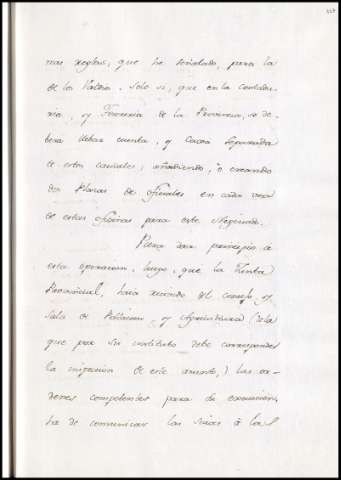 mas reglas, que he señalado, para la
de los Valdios. Solo si, que en la contadu-
ria, y Tesoreria de la Provincia, se de-
bera llebar cuenta, y Caxa Separada
de estos caudales; añadiendo, o creando
dos Plazas de oficiales en cada una
de estas oficinas para este Negociado.
Para dar principio à
esta operacion, luego, que la Junta
Provincial, haia recivido del consejo, y
Sala de Poblacion, y Agricultura (à la
que por su instituto debe corresponder
la inspeccion de este asunto,) las or-
denes competentes para su execucion,
ha de comunicar las suias à las